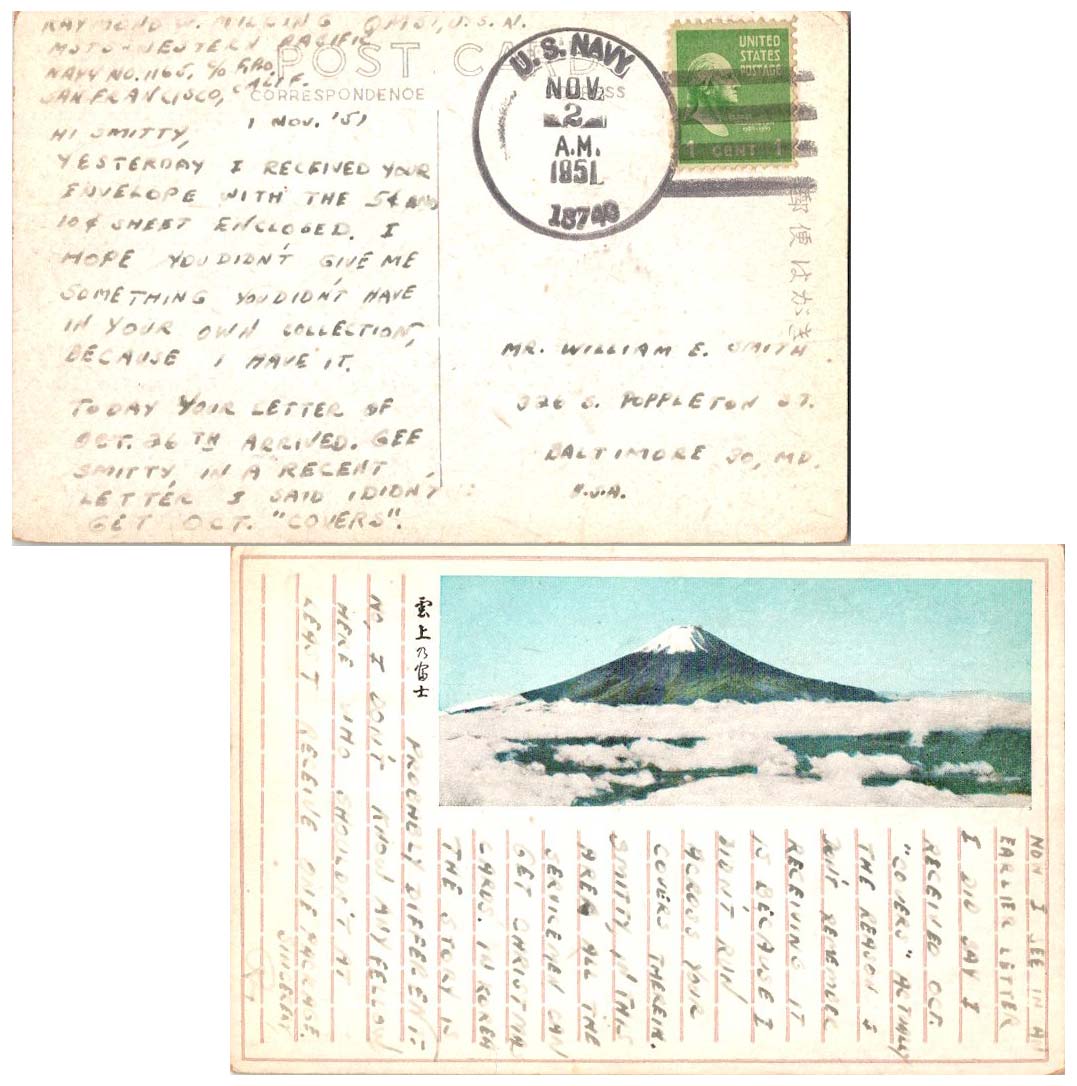 RAYMOND W. MILLING QMS1, U.S.N.
MSTS WESTERN PACIFIC
NAVY NO. 1165, c/o FPO,
SAN FRANCISCO, CALIF.
POST CARD
CORRESPONDENCE
1 NOV. '51
HI SMITTY,
YESTERDAY I RECEIVED YOUR
ENVELOPE WITH THE 5¢ AND
10¢ SHEET ENCLOSED. I
HOPE YOU DIDN'T GIVE ME
SOMETHING YOU DIDN'T HAVE
IN YOUR OWN COLLECTION,
BECAUSE I HAVE IT.
TODAY YOUR LETTER OF
OCT. 26TH ARRIVED. GEE
SMITTY, IN A RECENT
LETTER I SAID I DIDN'T
GET OCT. "COVERS".
U.S. NAVY
NOV.
2
A.M.
1951
18740
UNITED
STATES
POSTAGE
1 CENT 1
郵便はがき
MR. WILLIAM E. SMITH
326 S. POPPLETON ST.
BALTIMORE 30, MD.
U.S.A.
雲上乃富士
NOW I SEE IN AN
EARLIER LETTER
I DID SAY I
RECEIVED OCT.
"COVERS" ACTUALLY
THE REASON I
DON'T REMEMBER
RECEIVING IT
IS BECAUSE I
DIDN'T RUN
ACROSS YOUR
COVERS THEREIN.
SMITTY, IN THIS
AREA ALL THE
SERVICEMEN CAN
GET CHRISTMAS
CARDS. IN KOREA
THE STORY IS
PROBABLY DIFFERENT.
NO, I DON'T KNOW ANY FELLOW
HERE WHO SHOULDN'T AT
LEAST RECEIVE ONE PACKAGE.
SINCERELY,